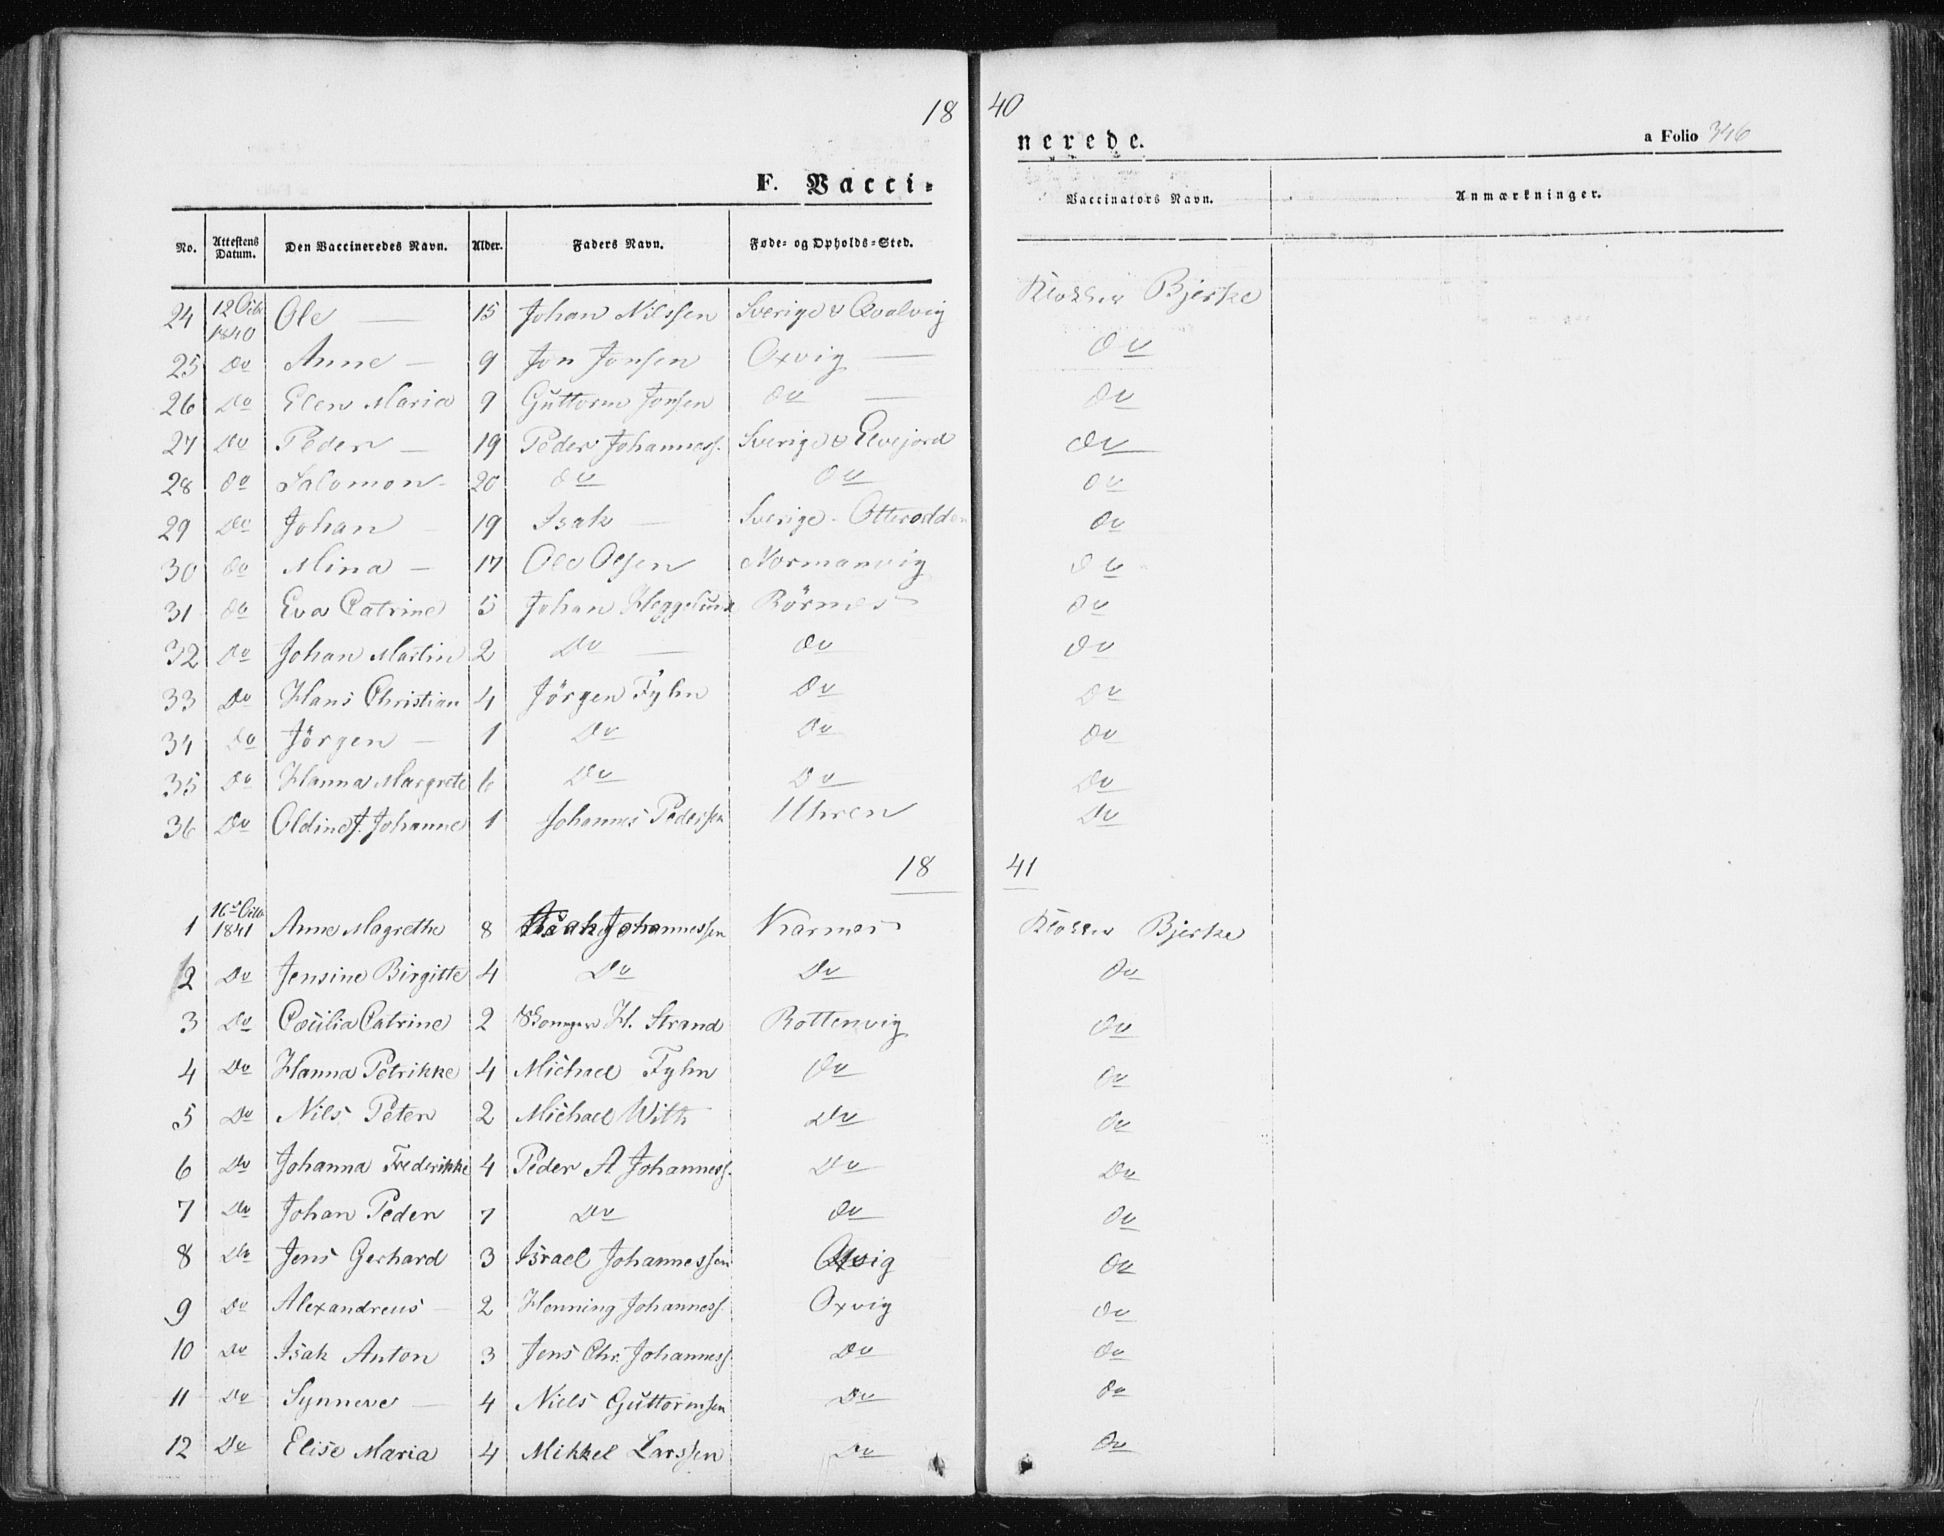 18 40
F. Vacci- nerede. a Folio 346
No. Attestens Datum. Den Vaccineredes Navn. Alder. Faders Navn. Føde- og Opholds-Sted. Vaccinators Navn. Anmærkninger.
24 12 Octbr 1840 Ole — 15 Johan Nilssen Sverige & Qvalvig Klokker Bjerke
25 Do Anne — 9 Jon Jonsen Oxvig — Do
26 Do Elen Maria 9 Guttorm Jonsen Do — Do
27 Do Peder — 19 Peder Johanness. Sverige & Elvejord Do
28 Do Salomon - 20 Do Do Do
29 Do Johan — 19 Isak — Sverige - Otterodden Do
30 Do Mina — 17 Ole Olsen Normanvig Do
31 Do Eva Catrine 5 Johan Heggelund Rörnes Do
32 Do Johan Martin 2 Do — Do Do
33 Do Hans Christian 4 Jörgen Fyhn Do Do
34 Do Jörgen — 1 Do Do Do
35 Do Hanna Margrete 6 Do Do Do
36 Do Oldine J. Johanne 1 Johannes Pederssen Uhren Do
18 41
1 16de Octbr 1841 Anne Magrethe 8 Isak Johannessen Karnes Klokker Bjerke
2 Do Jensine Birgitte 4 Do Do Do
3 Do Cæcilia Catrine 2 H. Strand Rottenvig Do
4 Do Hanna Petrikke 4 Michael Fyhn Do Do
5 Do Nils Peter 2 Michael With Do Do
6 Do Johanna Frederikke 4 Peder A Johanness. Do Do
7 Do Johan Peder 7 Do Do Do
8 Do Jens Gerhard 3 Israel Johannessen Do
9 Do Alexandreus — 2 Henning Johanness. Oxvig Do
10 Do Isak Anton 3 Jens Chr. Johanness. Do Do
11 Do Synneve — 4 Niels Guttormsen Do Do
12 Do Elise Maria 4 Mikkel Larssen Do Do